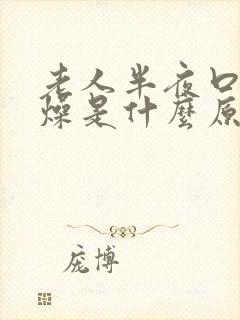 老人半夜口
燥是什麼原
庞博